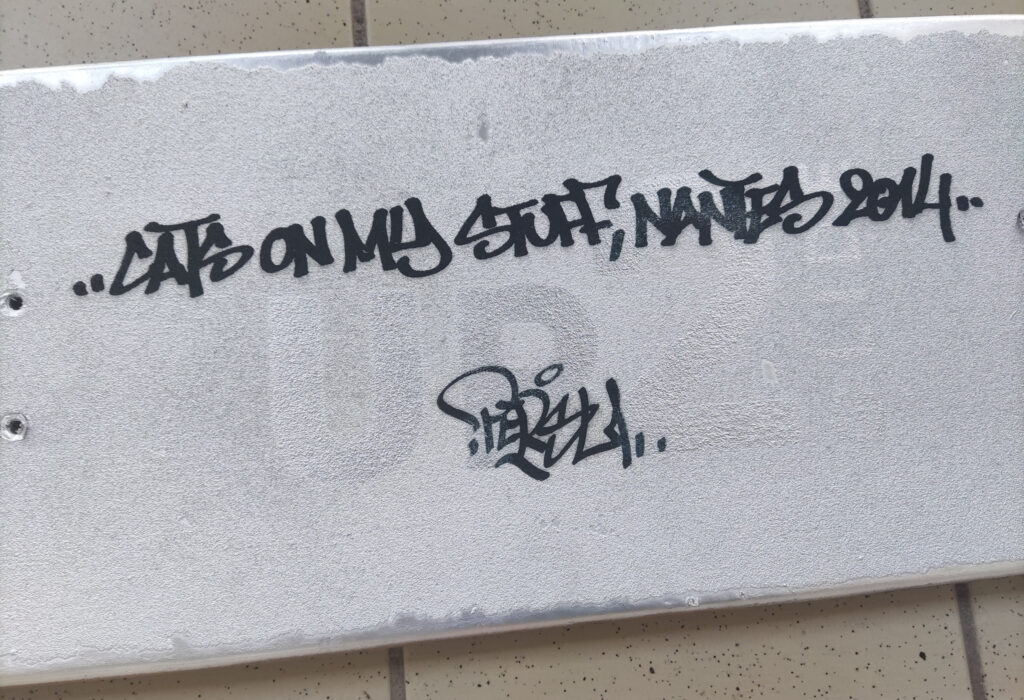 ..CATS ON MY STUFF, NANTES 2014..